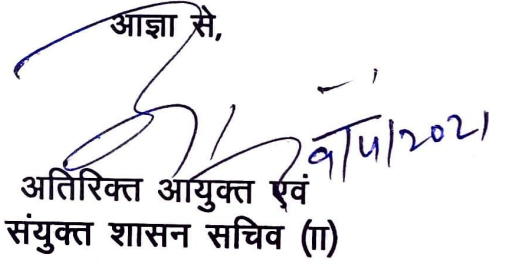 आज्ञा से,
अतिरिक्त आयुक्त एवं
संयुक्त शासन सचिव (II)